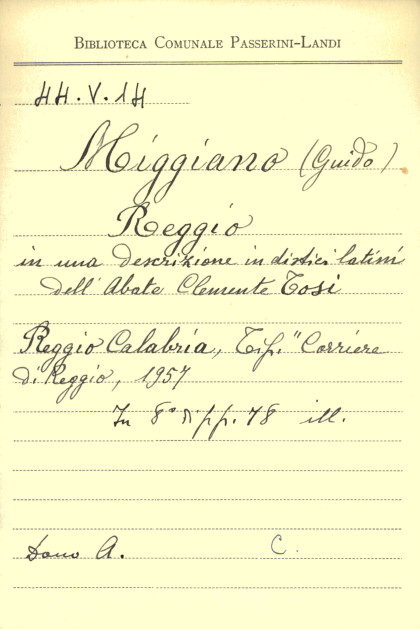 BIBLIOTECA COMUNALE PASSERINI-LANDI
44.V.14
Miggiano (Guido)
Reggio
in una descrizione in distici latini
dell'Abate Clemente Tosi
Reggio Calabria, Tip. "Corriere
di Reggio, 1957
In 8° di pp. 78 ill.
Dono A. C.